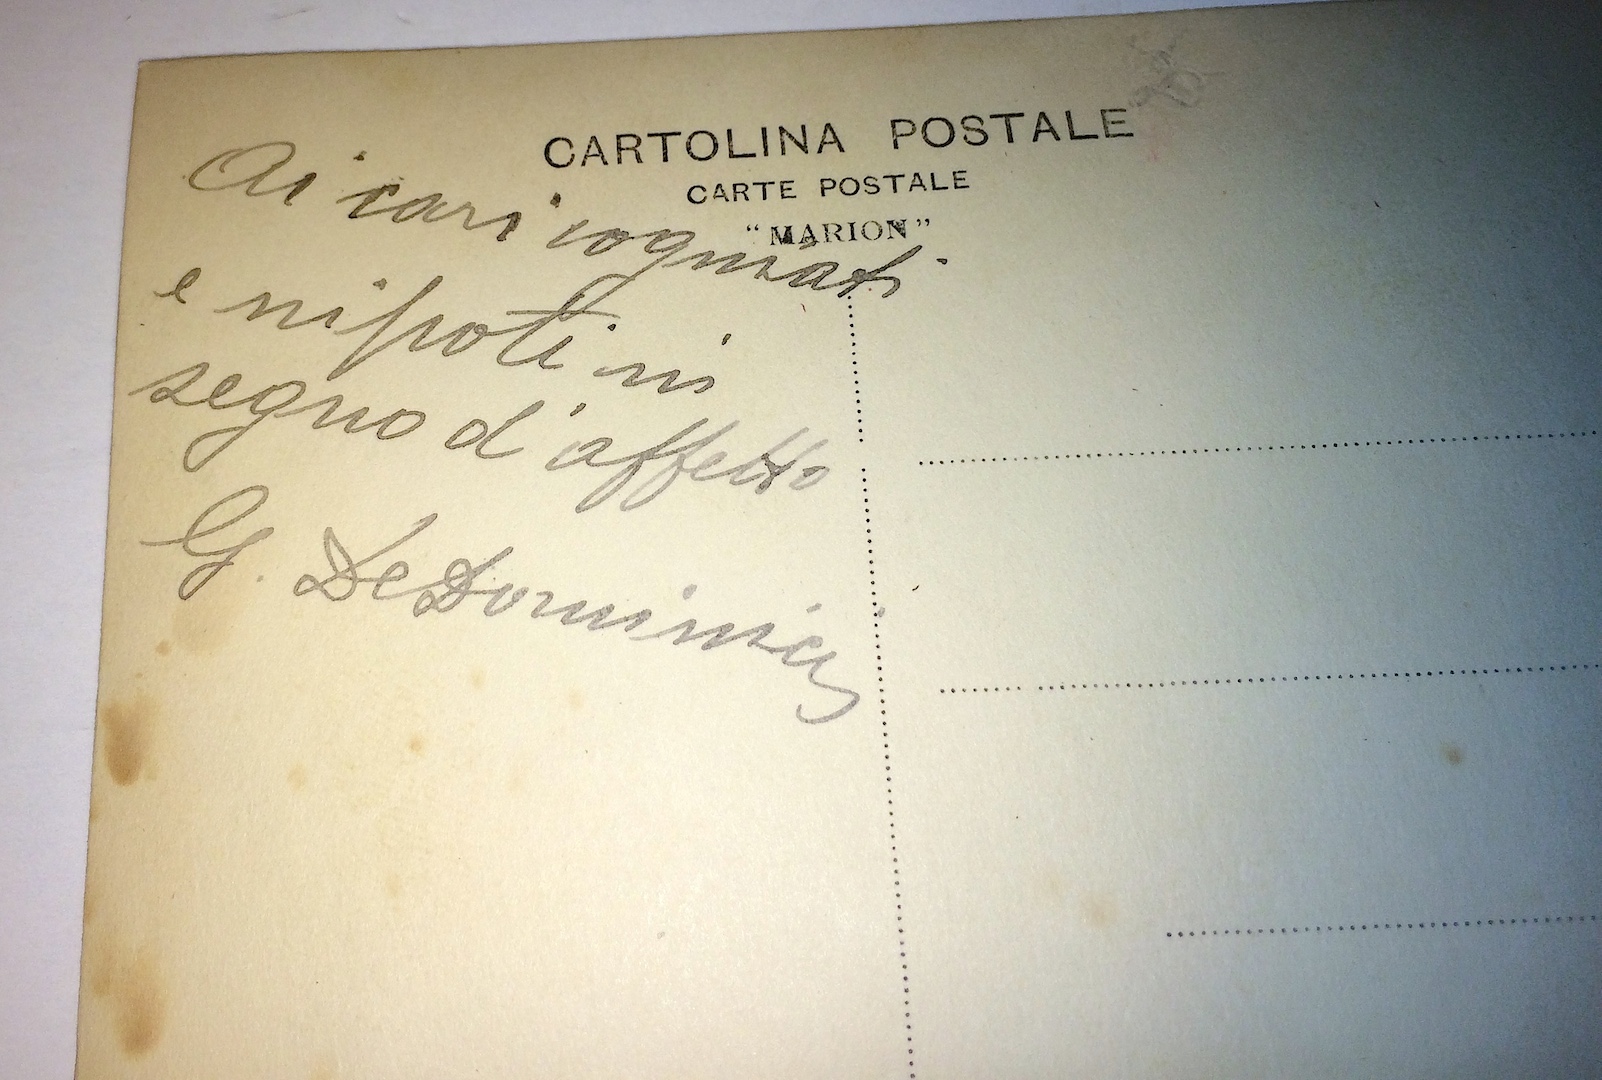 CARTOLINA POSTALE
CARTE POSTALE
"MARION"
Ai cari cogniati
e nipoti in
segno d'affetto
G. De Dominicis